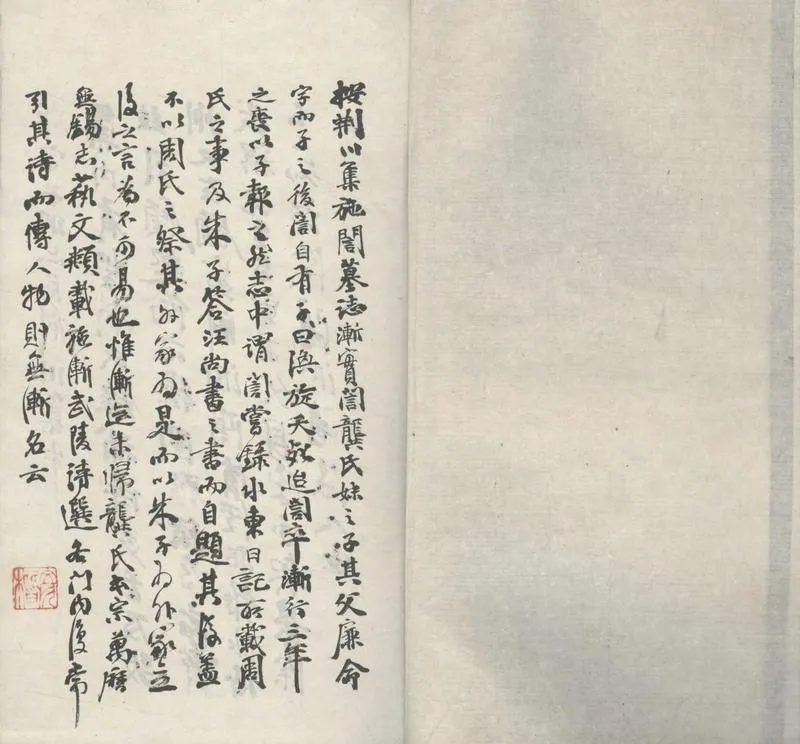 按荊川集施誾墓誌漸實誾龔氏妹之子其父廉命
字而子之後誾自有子曰渙旋夭歿迨誾卒漸行三年
之喪以子報之然志中謂誾嘗錄水東日記所載周
氏之事及朱子答汪尚書之書而自題其後蓋
不以周氏之祭其外家為是而以朱子為外家立
後之言為不可易也惟漸迄未歸龔氏本宗萬曆
無錫志藝文類載施漸武陵詩選各門內復常
引其詩而傳人物則無漸名云